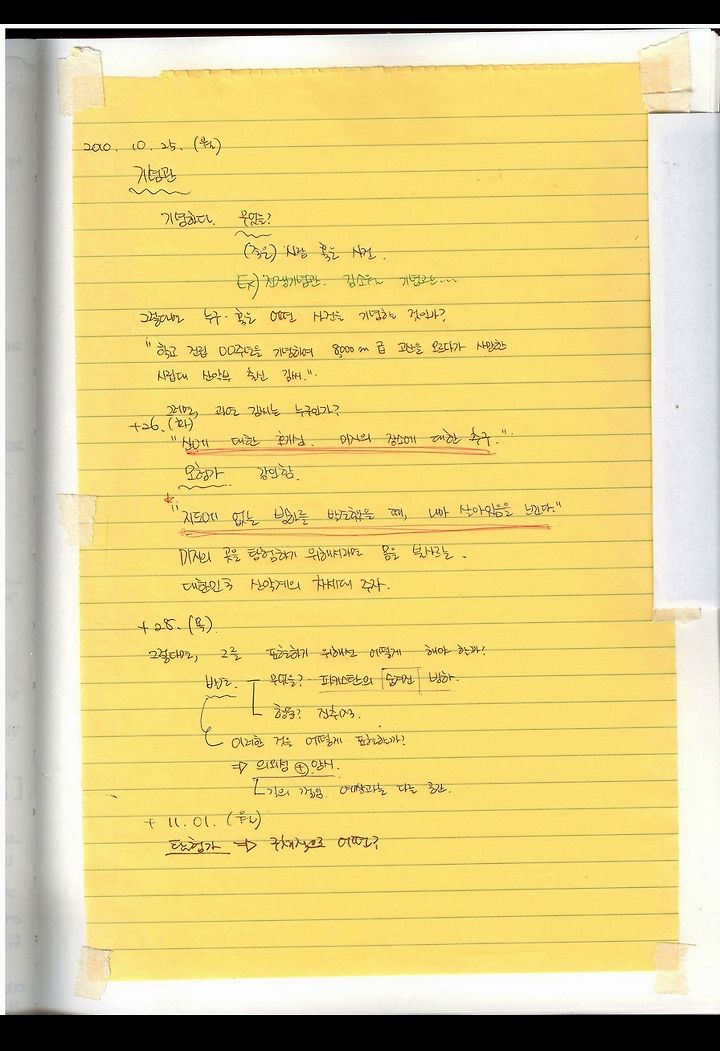 2010. 10. 25. (월)
기념관
기념하다. 무엇을?
(죽은) 사람 혹은 사건.
Ex) 전쟁기념관. 김소월 기념관...
그렇다면 누구·혹은 어떤 사건을 기념하는 것인가?
"학교 건립 00주년을 기념하여 8,000m급 고산을 오르다가 사망한
시립대 산악부 출신 김씨."
그러면, 과연 김씨는 누구인가?
+26. (화)
대한 미지의 장소에 대한 추구."
모험가
"지도에 없는 빙하를 발견했을 때, 나의 살아있음을 느낀다."
미지의 곳을 탐험하기 위해서라면 몸을 불사르는.
대한민국 산악계의 차세대 주자.
+ 28. (목)
그렇다면, 그를 표현하기 위해선 어떻게 해야 할까?
무엇을? 파키스탄의 빙하.
이러한 것을 어떻게 표현할까?
⇒ 의외성 ⊕
예상과는 다른 공간.
+ 11. 01. (월)
탐험가 ⇒ 구체적으로 어떤?